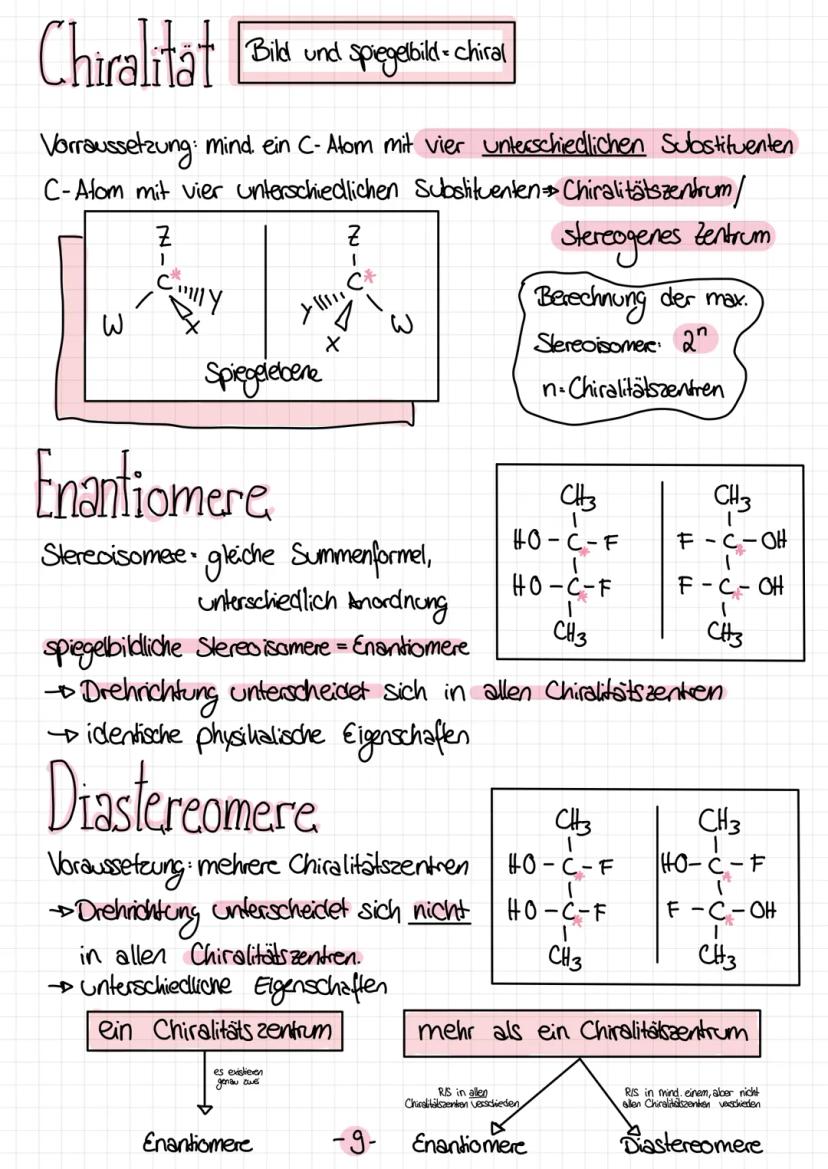 Chiralität
Bild und Spiegelbild = chiral
Vorraussetzung: mind. ein C-Atom mit vier unterschiedlichen Substituenten
C-Atom mit vier unterschiedlichen Substituenten ⇒ Chiralitätszentrum/
stereogenes Zentrum
Z Z
C* C*
W Y Y W
X X
Spiegelebene
Berechnung der max.
Stereoisomere: 2ⁿ
n = Chiralitätszentren
Enantiomere
Stereoisomere = gleiche Summenformel,
unterschiedlich Anordnung
spiegelbildliche Stereoisomere = Enantiomere
→ Drehrichtung unterscheidet sich in allen Chiralitätszentren
→ identische physikalische Eigenschaften
CH₃ CH₃
HO - C* - F F - C* - OH
HO - C* - F F - C* - OH
CH₃ CH₃
Diastereomere
Voraussetzung: mehrere Chiralitätszentren
→ Drehrichtung unterscheidet sich nicht
in allen Chiralitätszentren.
→ unterschiedliche Eigenschaften
CH₃ CH₃
HO - C* - F HO - C* - F
HO - C* - F F - C* - OH
CH₃ CH₃
ein Chiralitätszentrum
es existieren
genau zwei
Enantiomere
mehr als ein Chiralitätszentrum
R/S in allen
Chiralitätszentren verschieden
R/S in mind. einem, aber nicht
allen Chiralitätszentren verschieden
Enantiomere
Diastereomere
-9-